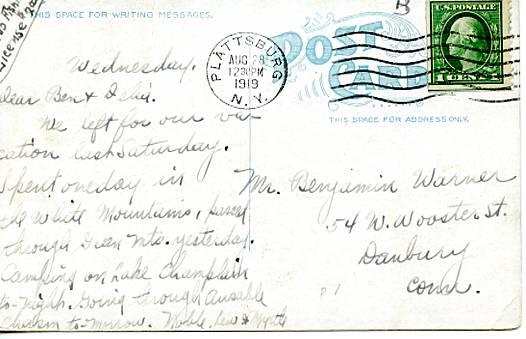 THIS SPACE FOR WRITING MESSAGES.
B
POST
CARD
U.S. POSTAGE
PLATTSBURG
AUG 28
1230PM
1919
N.Y.
THIS SPACE FOR ADDRESS ONLY.
Wednesday.
Dear Ben &
We left for our va-
cation last Saturday.
Spent one day in
the White Mountains, passed
through Green Mts. yesterday.
Camping on Lake Champlain
to-night. Going through Ausable
Chasm to-morrow. Noble, Lew & Myrtle
Mr. Benjamin Warner
54 W. Wooster St.
Danbury
Conn.